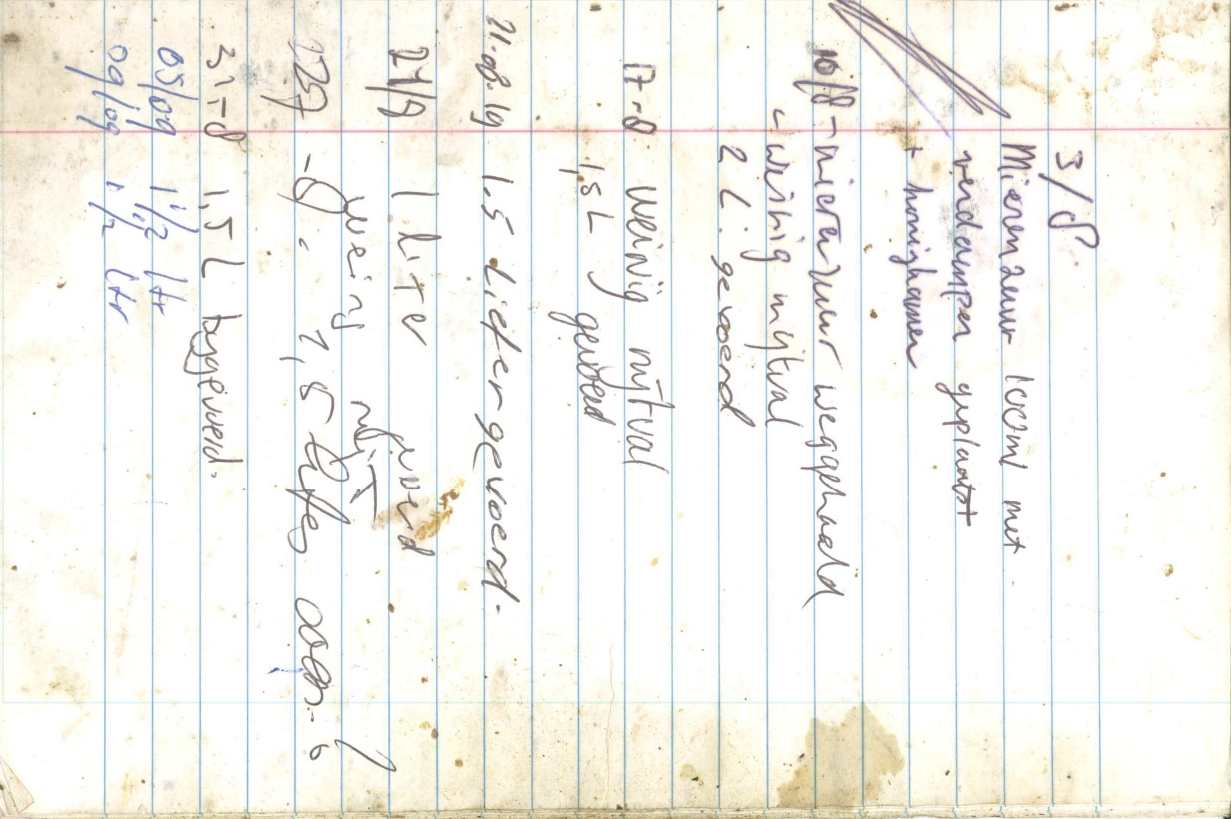 3/8.
Mierenzuur 100ml met
verdamper geplaatst
+ honingkamer
10/8 - mierenzuur weggehaald
- weinig mytval
2 L. gevoerd
17-8 weinig mytval
1,5L gevoerd
21-08-19 1.5 Liter gevoerd.
24/8 1 liter gevoerd
weinig mijt
-8. 1,5 liter
31-8 1,5 L bijgevoerd.
05/09 1 1/2 ltr
09/09 1 1/2 ltr